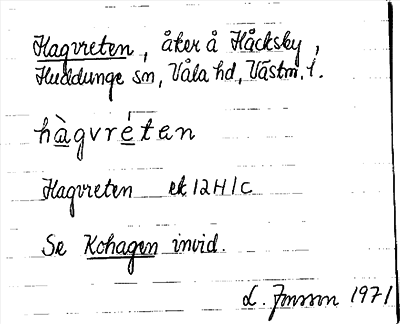 Hagvreten, åker å Håcksby,
Huddunge sn, Våla hd, Västm. l.
hàgvréten
Hagvreten ek 12H1c
Se Kohagen invid.
L. Jonsson 1971